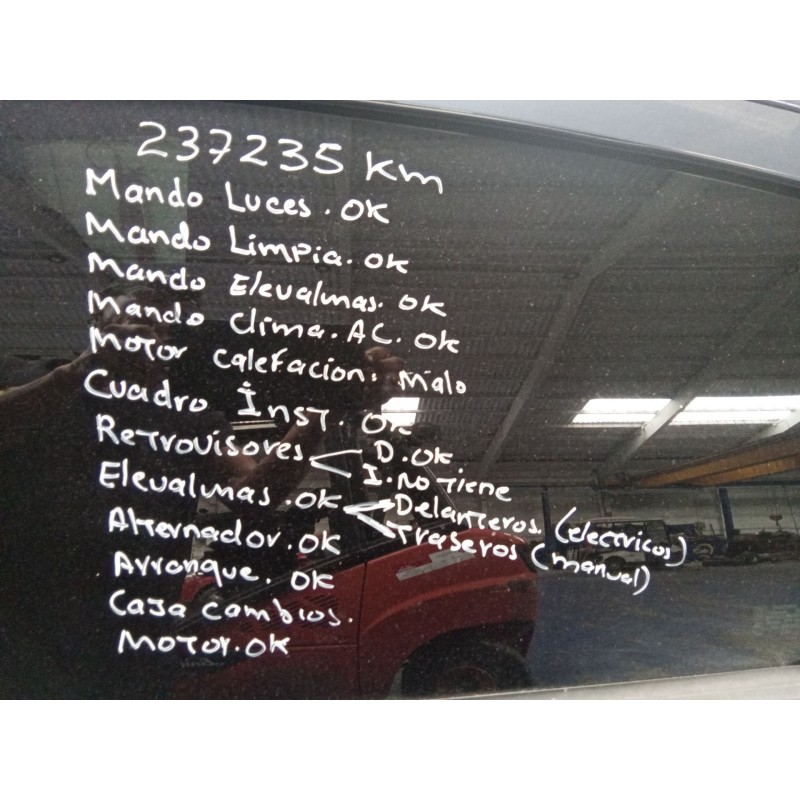 237235 km
Mando Luces. OK
Mando Limpia. OK
Mando Elevalunas. OK
Mando clima. AC. OK
Motor calefacion. Malo
Cuadro Inst. OK
Retrovisores D. OK
I. No tiene
Elevalunas. OK Delanteros. (electricos)
Traseros (manual)
Alternador. OK
Arranque. OK
Caja cambios.
Motor. OK